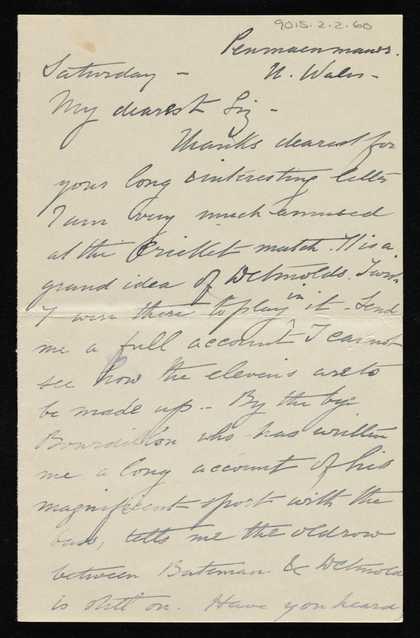 9015.2.2.60
Penmaenmawr.
Saturday - N. Wales -
My dearest Liz -
Thanks dearest for
your long & interesting letter
I am very much amused
at the Cricket match. It is a
grand idea of Detmolds. I wish
I were there to play in it. Send
me a full account I cannot
see how the elevens are to
be made up - By the by
Bourdillon who has written
me a long account of his
magnificent sport with the
tells me the old row
between Bateman & Detmold
is still on. Have you heard